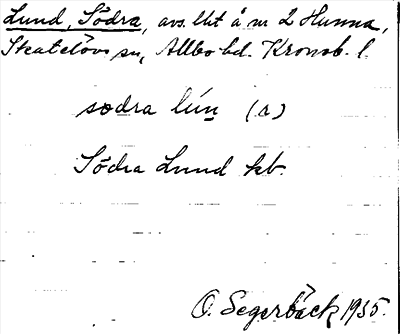 Lund, Södra, avs. lht å nr 2 Hunna,
Skatelövs sn, Allbo hd. Kronob. l.
sodra lún (a)
Södra Lund kb.
O. Segerbäck 1935.